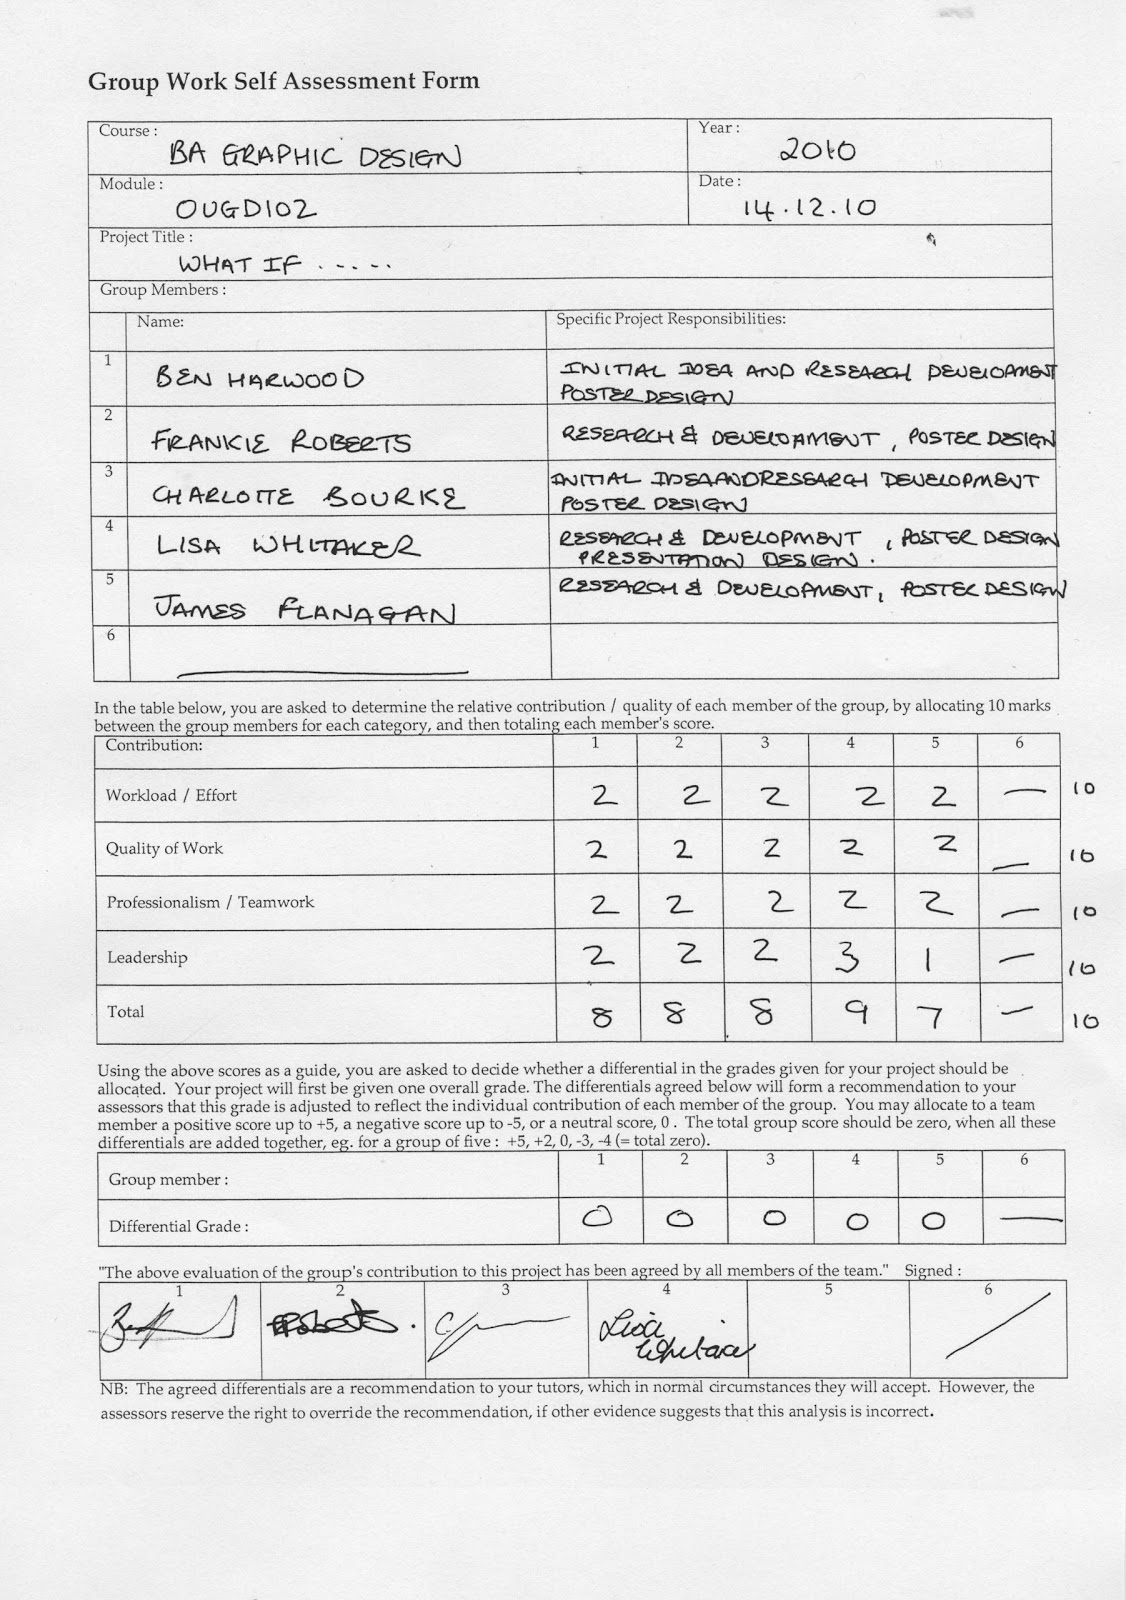 Group Work Self Assessment Form
Course : BA GRAPHIC DESIGN Year : 2010
Module : OUGD102 Date : 14.12.10
Project Title :
WHAT IF .....
Group Members :
Name: Specific Project Responsibilities:
1 BEN HARWOOD INITIAL IDEA AND RESEARCH DEVELOPMENT
POSTER DESIGN
2 FRANKIE ROBERTS RESEARCH & DEVELOPMENT, POSTER DESIGN
3 CHARLOTTE BOURKE INITIAL IDEA AND RESEARCH DEVELOPMENT
POSTER DESIGN
4 LISA WHITAKER RESEARCH & DEVELOPMENT, POSTER DESIGN
PRESENTATION DESIGN.
5 JAMES FLANAGAN RESEARCH & DEVELOPMENT, POSTER DESIGN
6
In the table below, you are asked to determine the relative contribution / quality of each member of the group, by allocating 10 marks
between the group members for each category, and then totaling each member's score.
Contribution: 1 2 3 4 5 6
Workload / Effort 2 2 2 2 2 — 10
Quality of Work 2 2 2 2 2 — 10
Professionalism / Teamwork 2 2 2 2 2 — 10
Leadership 2 2 2 3 1 — 10
Total 8 8 8 9 7 — 10
Using the above scores as a guide, you are asked to decide whether a differential in the grades given for your project should be
allocated. Your project will first be given one overall grade. The differentials agreed below will form a recommendation to your
assessors that this grade is adjusted to reflect the individual contribution of each member of the group. You may allocate to a team
member a positive score up to +5, a negative score up to -5, or a neutral score, 0 . The total group score should be zero, when all these
differentials are added together, eg. for a group of five : +5, +2, 0, -3, -4 (= total zero).
Group member : 1 2 3 4 5 6
Differential Grade : 0 0 0 0 0 —
"The above evaluation of the group's contribution to this project has been agreed by all members of the team." Signed :
1 2 3 4 5 6
Lisa
Whitaker
NB: The agreed differentials are a recommendation to your tutors, which in normal circumstances they will accept. However, the
assessors reserve the right to override the recommendation, if other evidence suggests that this analysis is incorrect.